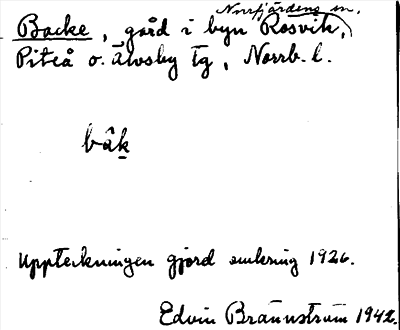 Norrfjärdens sn.
Backe, gård i byn Rosvik,
Piteå o. Älvsby tg, Norrb. l.
bâk
Uppteckningen gjord omkring 1926.
Edvin Brännström 1942.